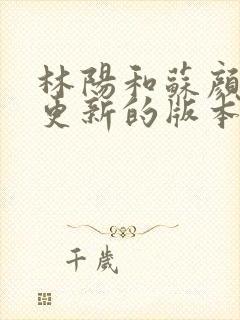 林陽和蘇顏
更新的版本
千歲